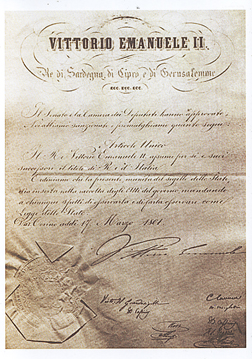 VITTORIO EMANUELE II.
Re di Sardegna, di Cipro e di Gerusalemme
ecc. ecc. ecc.
Il Senato e la Camera dei Deputati hanno approvato,
Noi abbiamo sanzionato e promulghiamo quanto segue
Articolo Unico
Il Re Vittorio Emanuele II assume per sè e suoi
successori il titolo di Re d'Italia.
Ordiniamo che la presente, munita del sigillo dello Stato
sia inserta nella raccolta degli Atti del governo, mandando
a chiunque spetti di osservarla e di farla osservare come
Legge dello Stato.
Torino addì 17 Marzo 1861.
Vittorio Emanuele